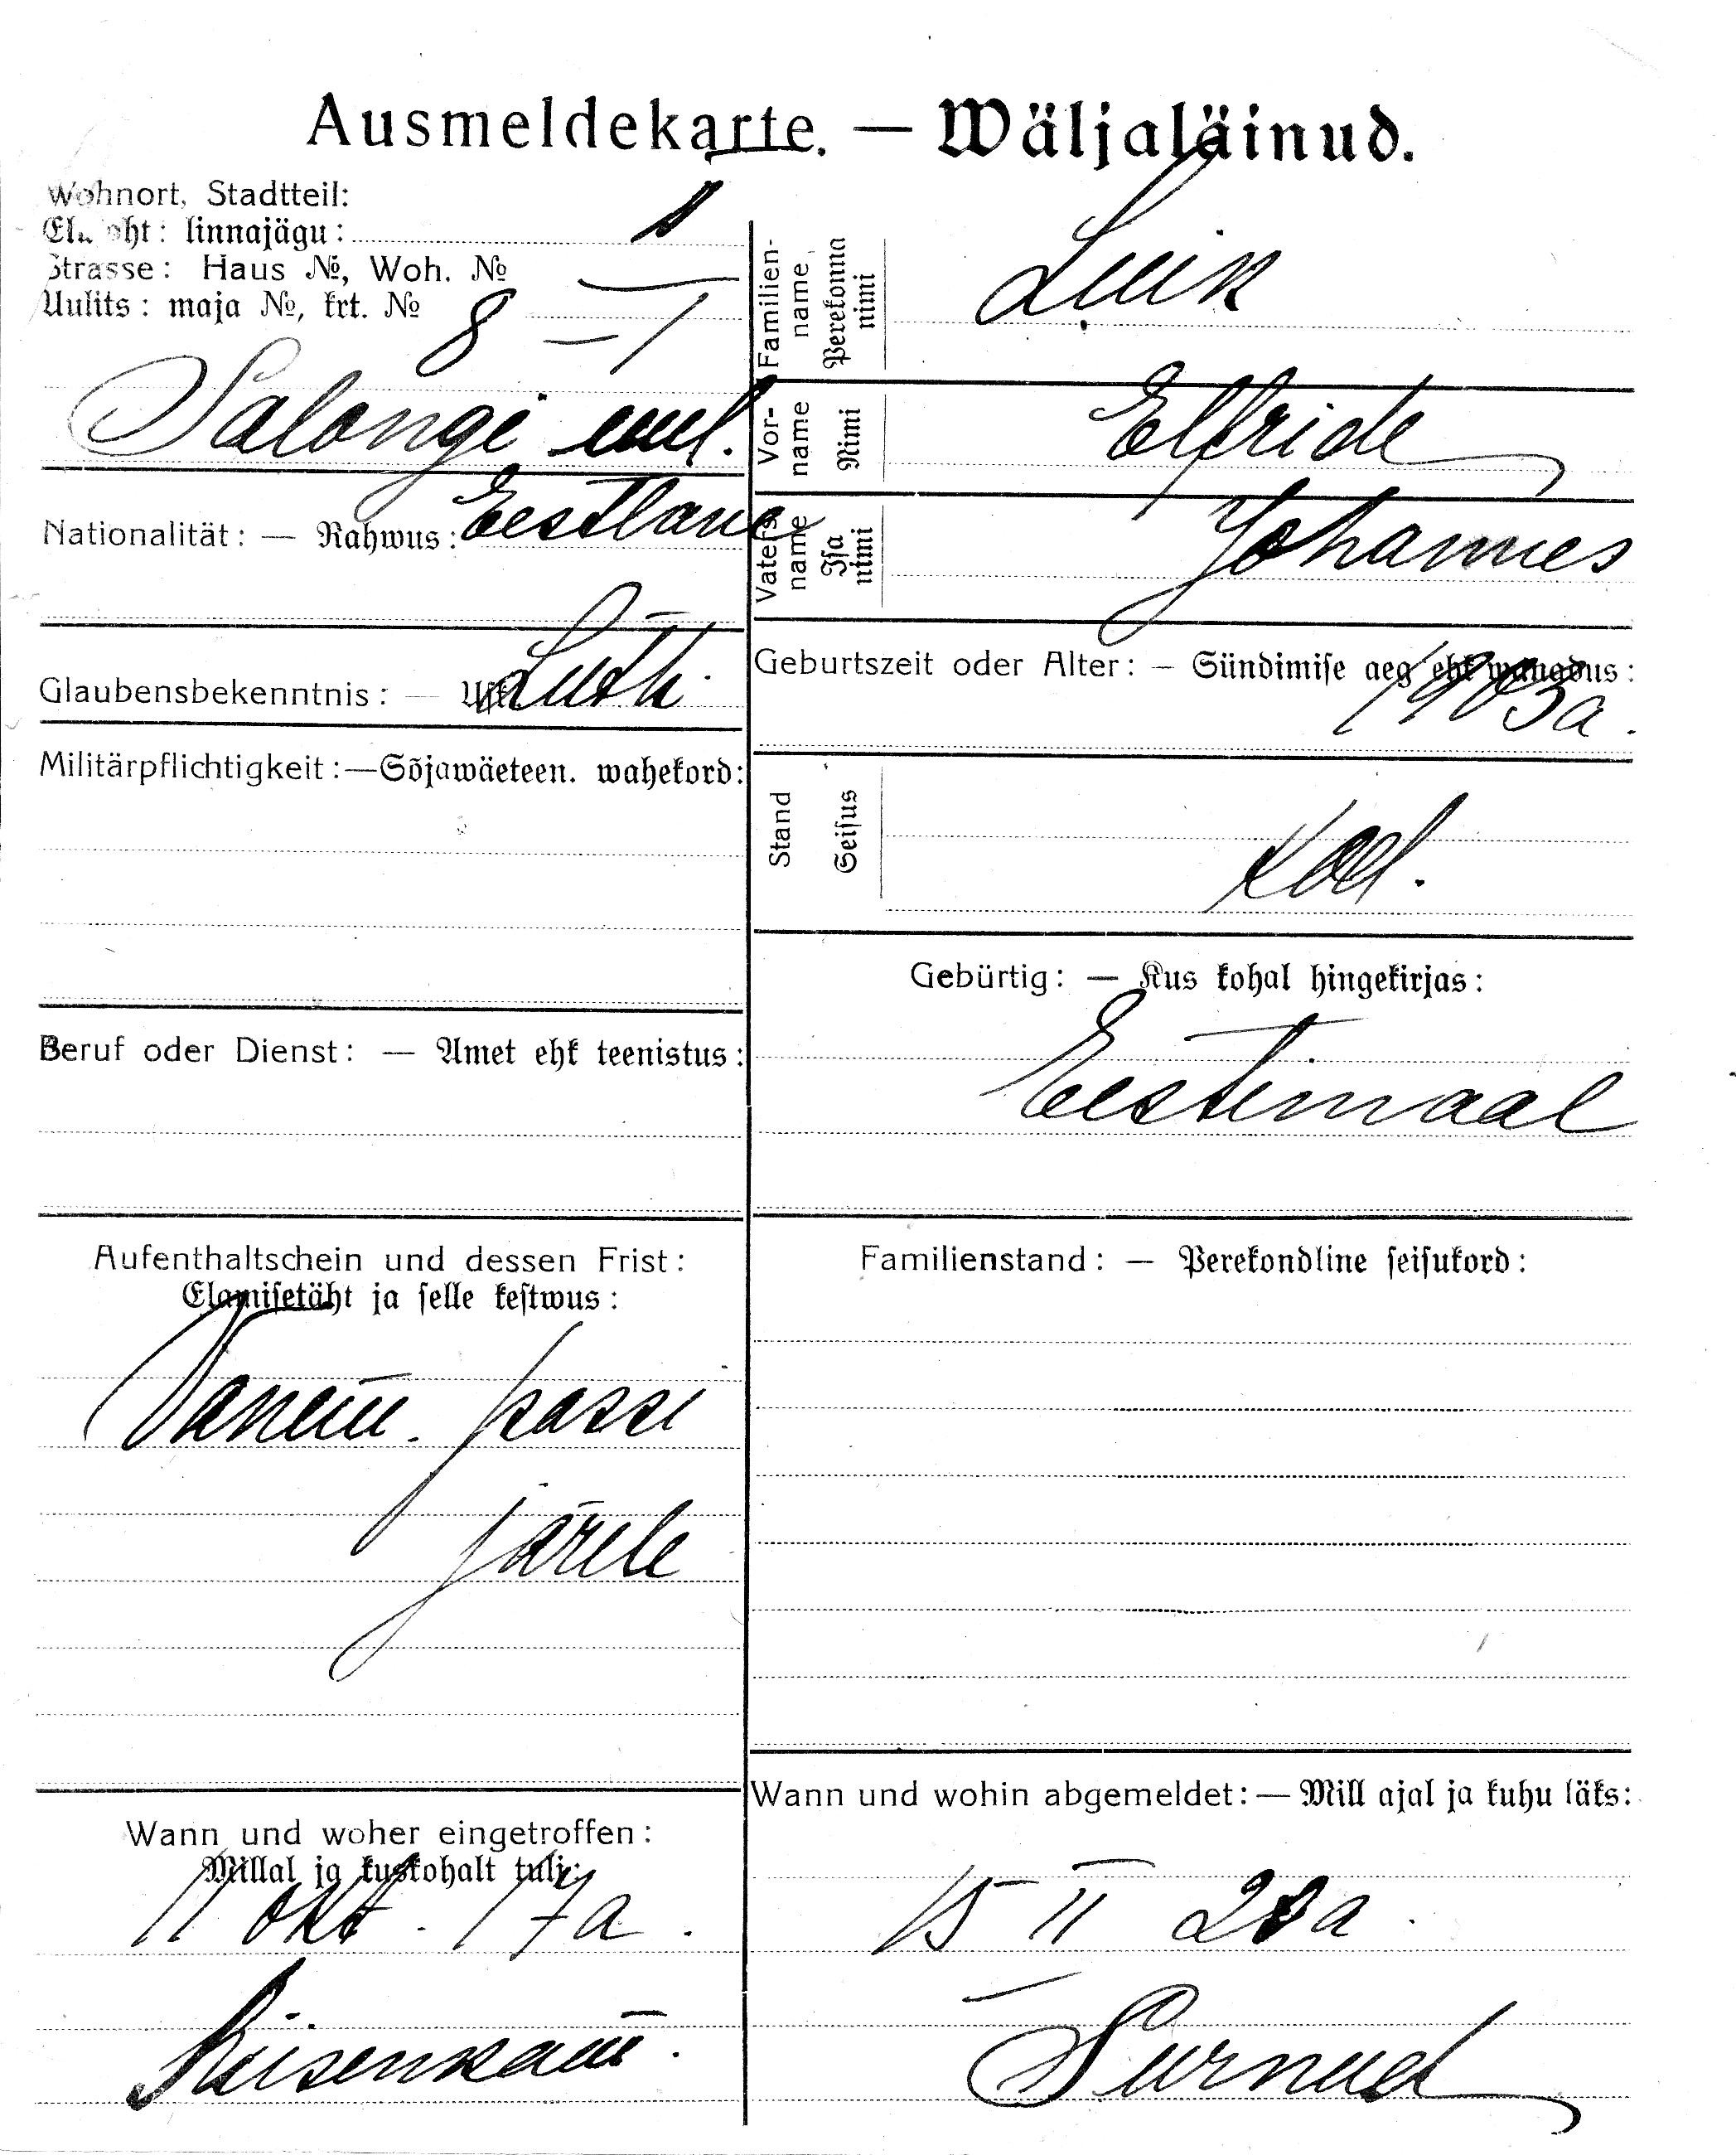 Ausmeldekarte. — Wäljaläinud.
Wohnort, Stadtteil:
Elukoht: linnajägu: 1
Strasse: Haus №, Woh. №
Uulits: maja №, krt. № 8 — 1
Salongi uul.
Nationalität: — Rahwus: Eestlane
Glaubensbekenntnis: — Usk: Luth.
Militärpflichtigkeit: — Sõjawäeteen. wahekord:
Beruf oder Dienst: — Amet ehk teenistus:
Aufenthaltschein und dessen Frist:
Elamisetäht ja selle kestwus:
Wanem. passi
järele
Wann und woher eingetroffen:
Millal ja kuskohalt tuli:
11 okt. 17 a.
Familienname
Perekonna nimi
Luik
Vorname
Nimi
Elfride
Vatersname
Isa nimi
Johannes
Geburtszeit oder Alter: — Sündimise aeg ehk wanadus:
1903 a.
Stand
Seisus
Gebürtig: — Kus kohal hingekirjas:
Eestimaal
Familienstand: — Perekondline seisukord:
Wann und wohin abgemeldet: — Mill ajal ja kuhu läks:
15 II a.
Surnud